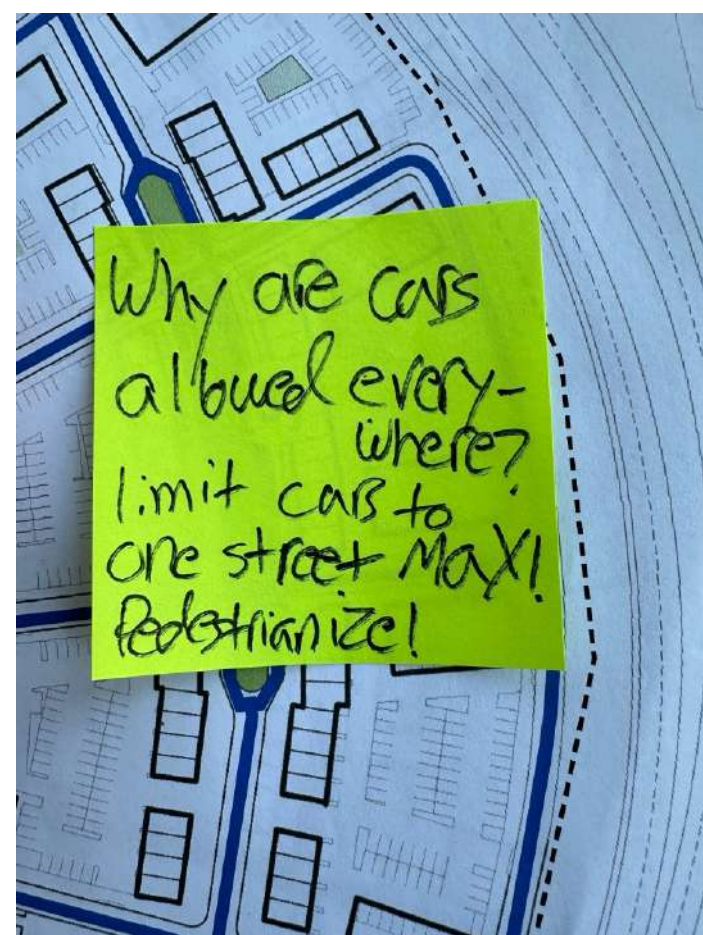 Why are cars
allowed every-
where?
limit cars to
one street Max!
Pedestrianize!